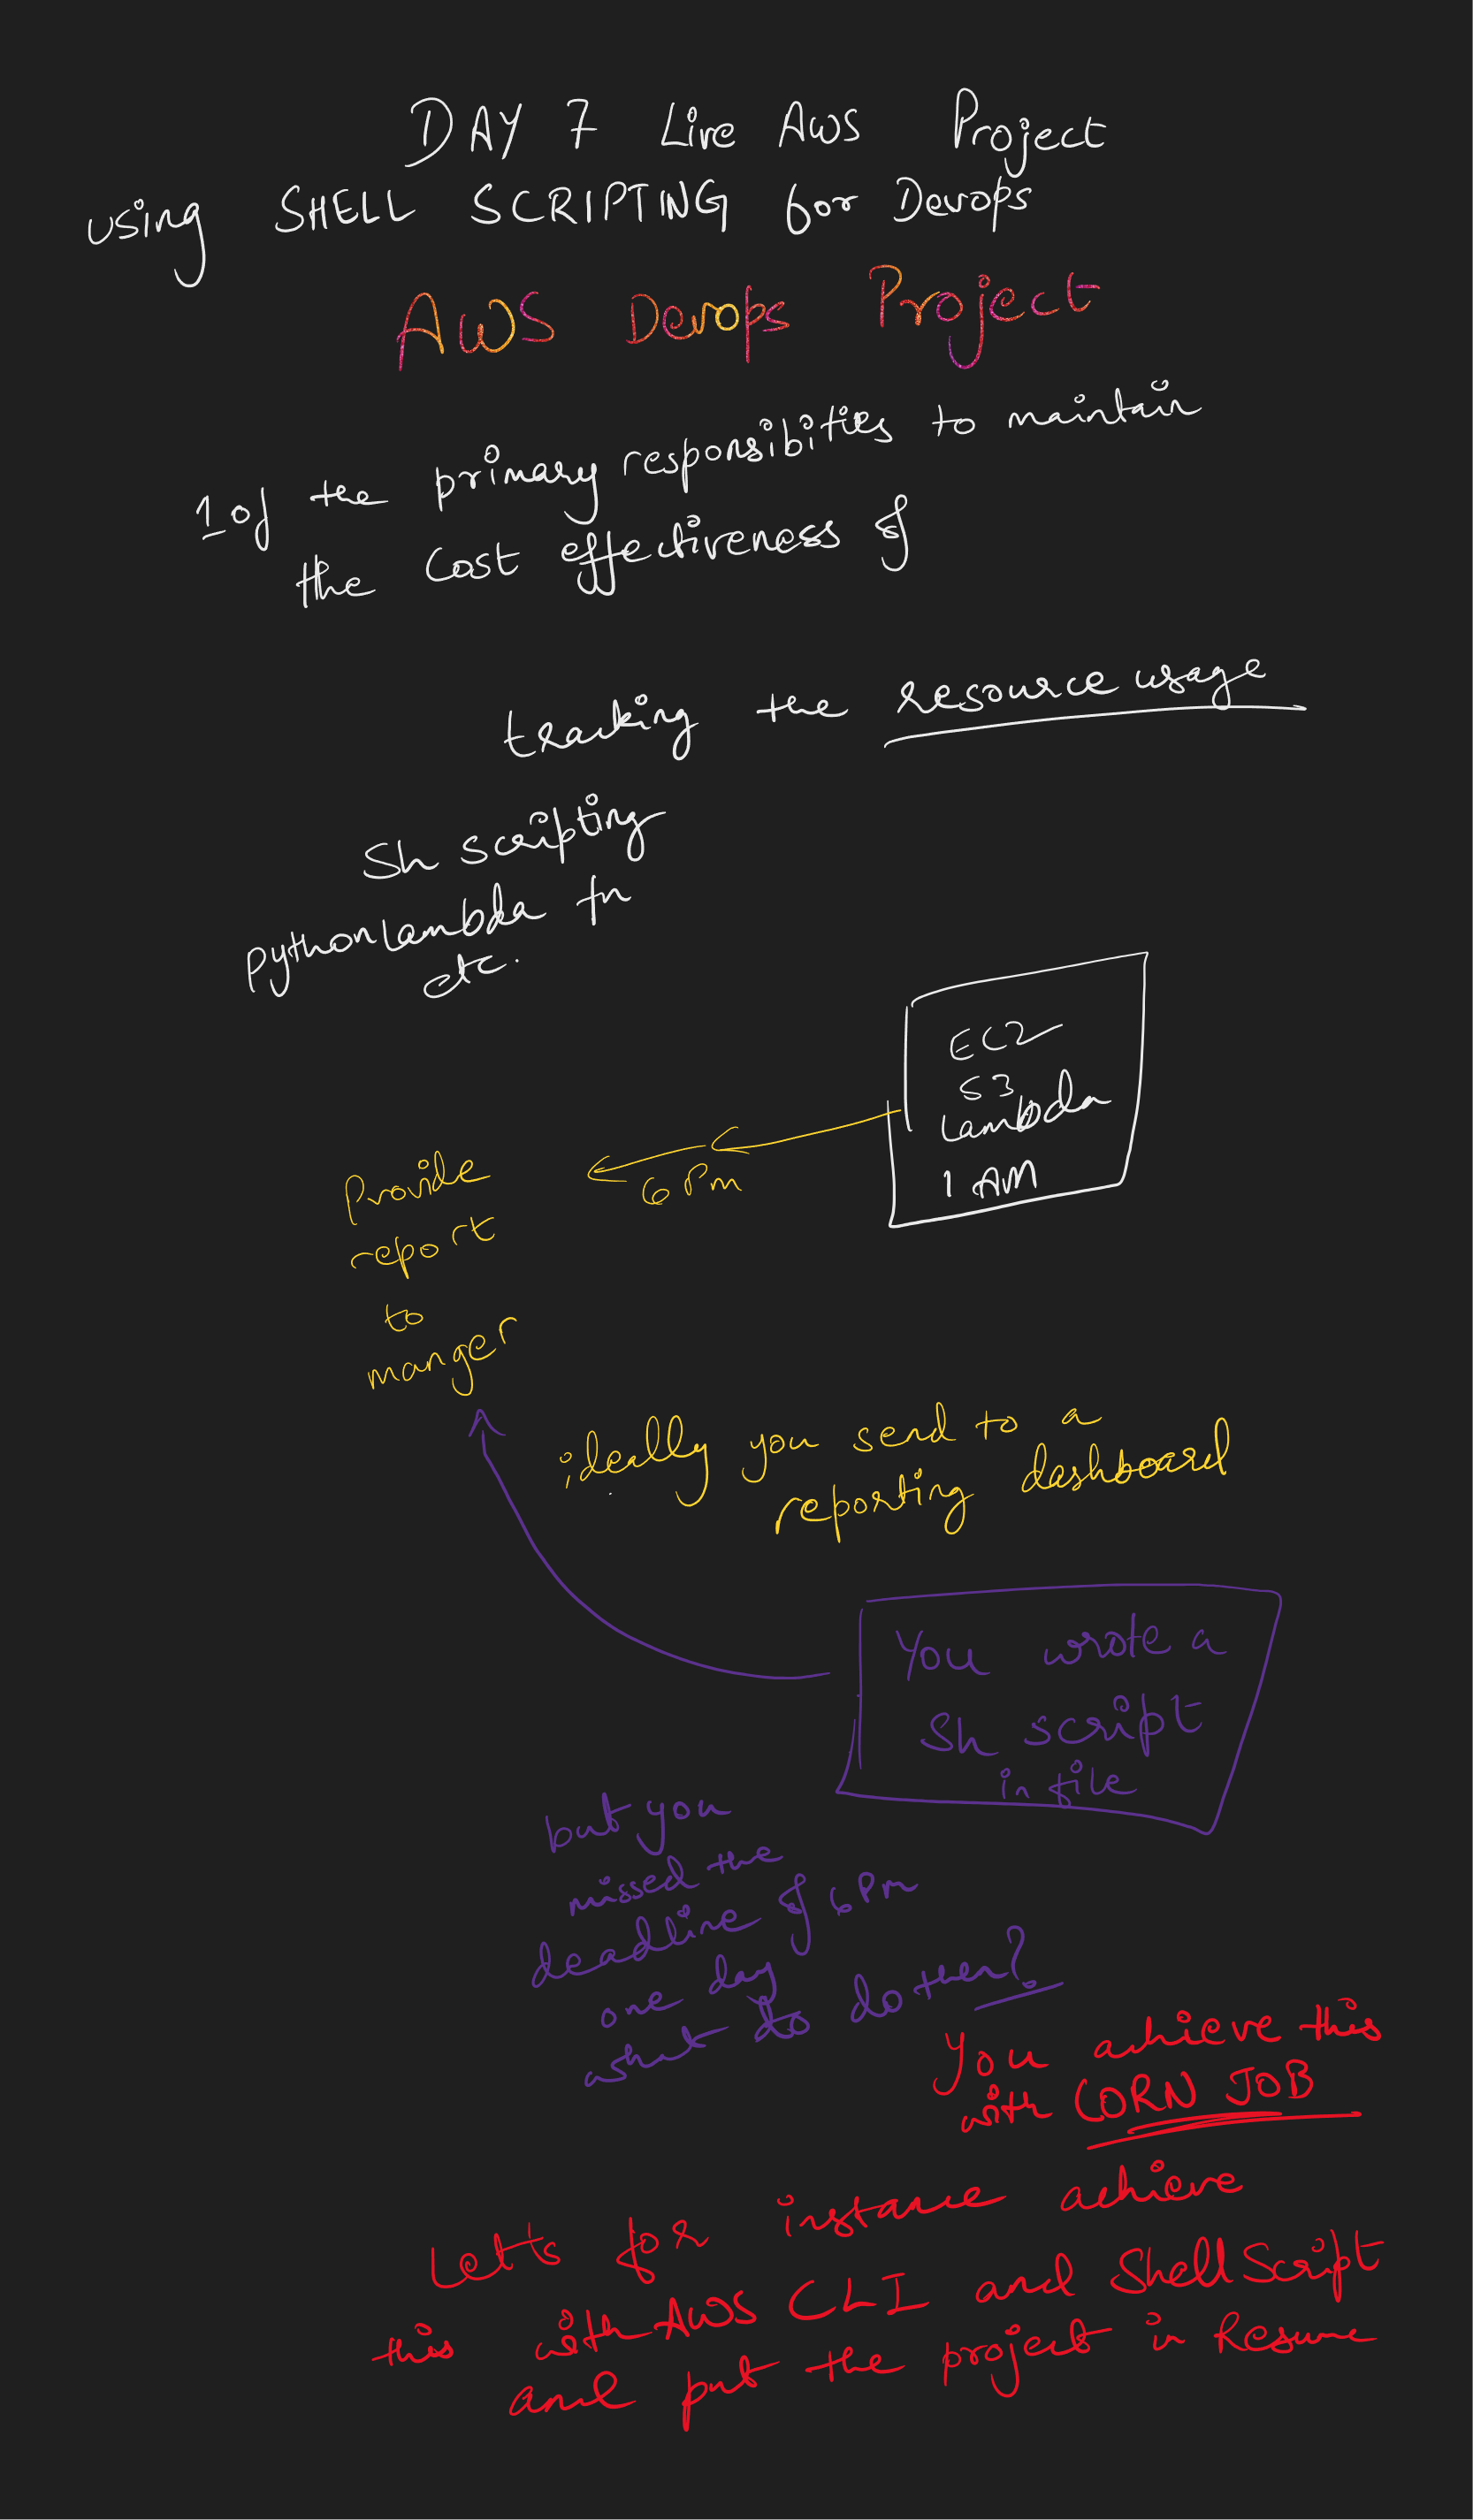 DAY 7 Live AWS Project
using SHELL SCRIPTING for Devops
AWS Devops Project
1 of the primary responsibities to maintain
the cost effectiveness of
tracking the resource usage
Sh scripting
python lambda fn
etc.
EC2
S3
Lambda
IAM
6 Pm
Provide
report
to
manger
ideally you send to a
reporting dashboard
You wrote a
Sh script
in file
but you
missed the
deadline of 6 Pm
one day
what to do then?
You achieve this
with CORN JOB
Let's for instance achieve
this with AWS CLI and Shell Script
and put the project in Resume